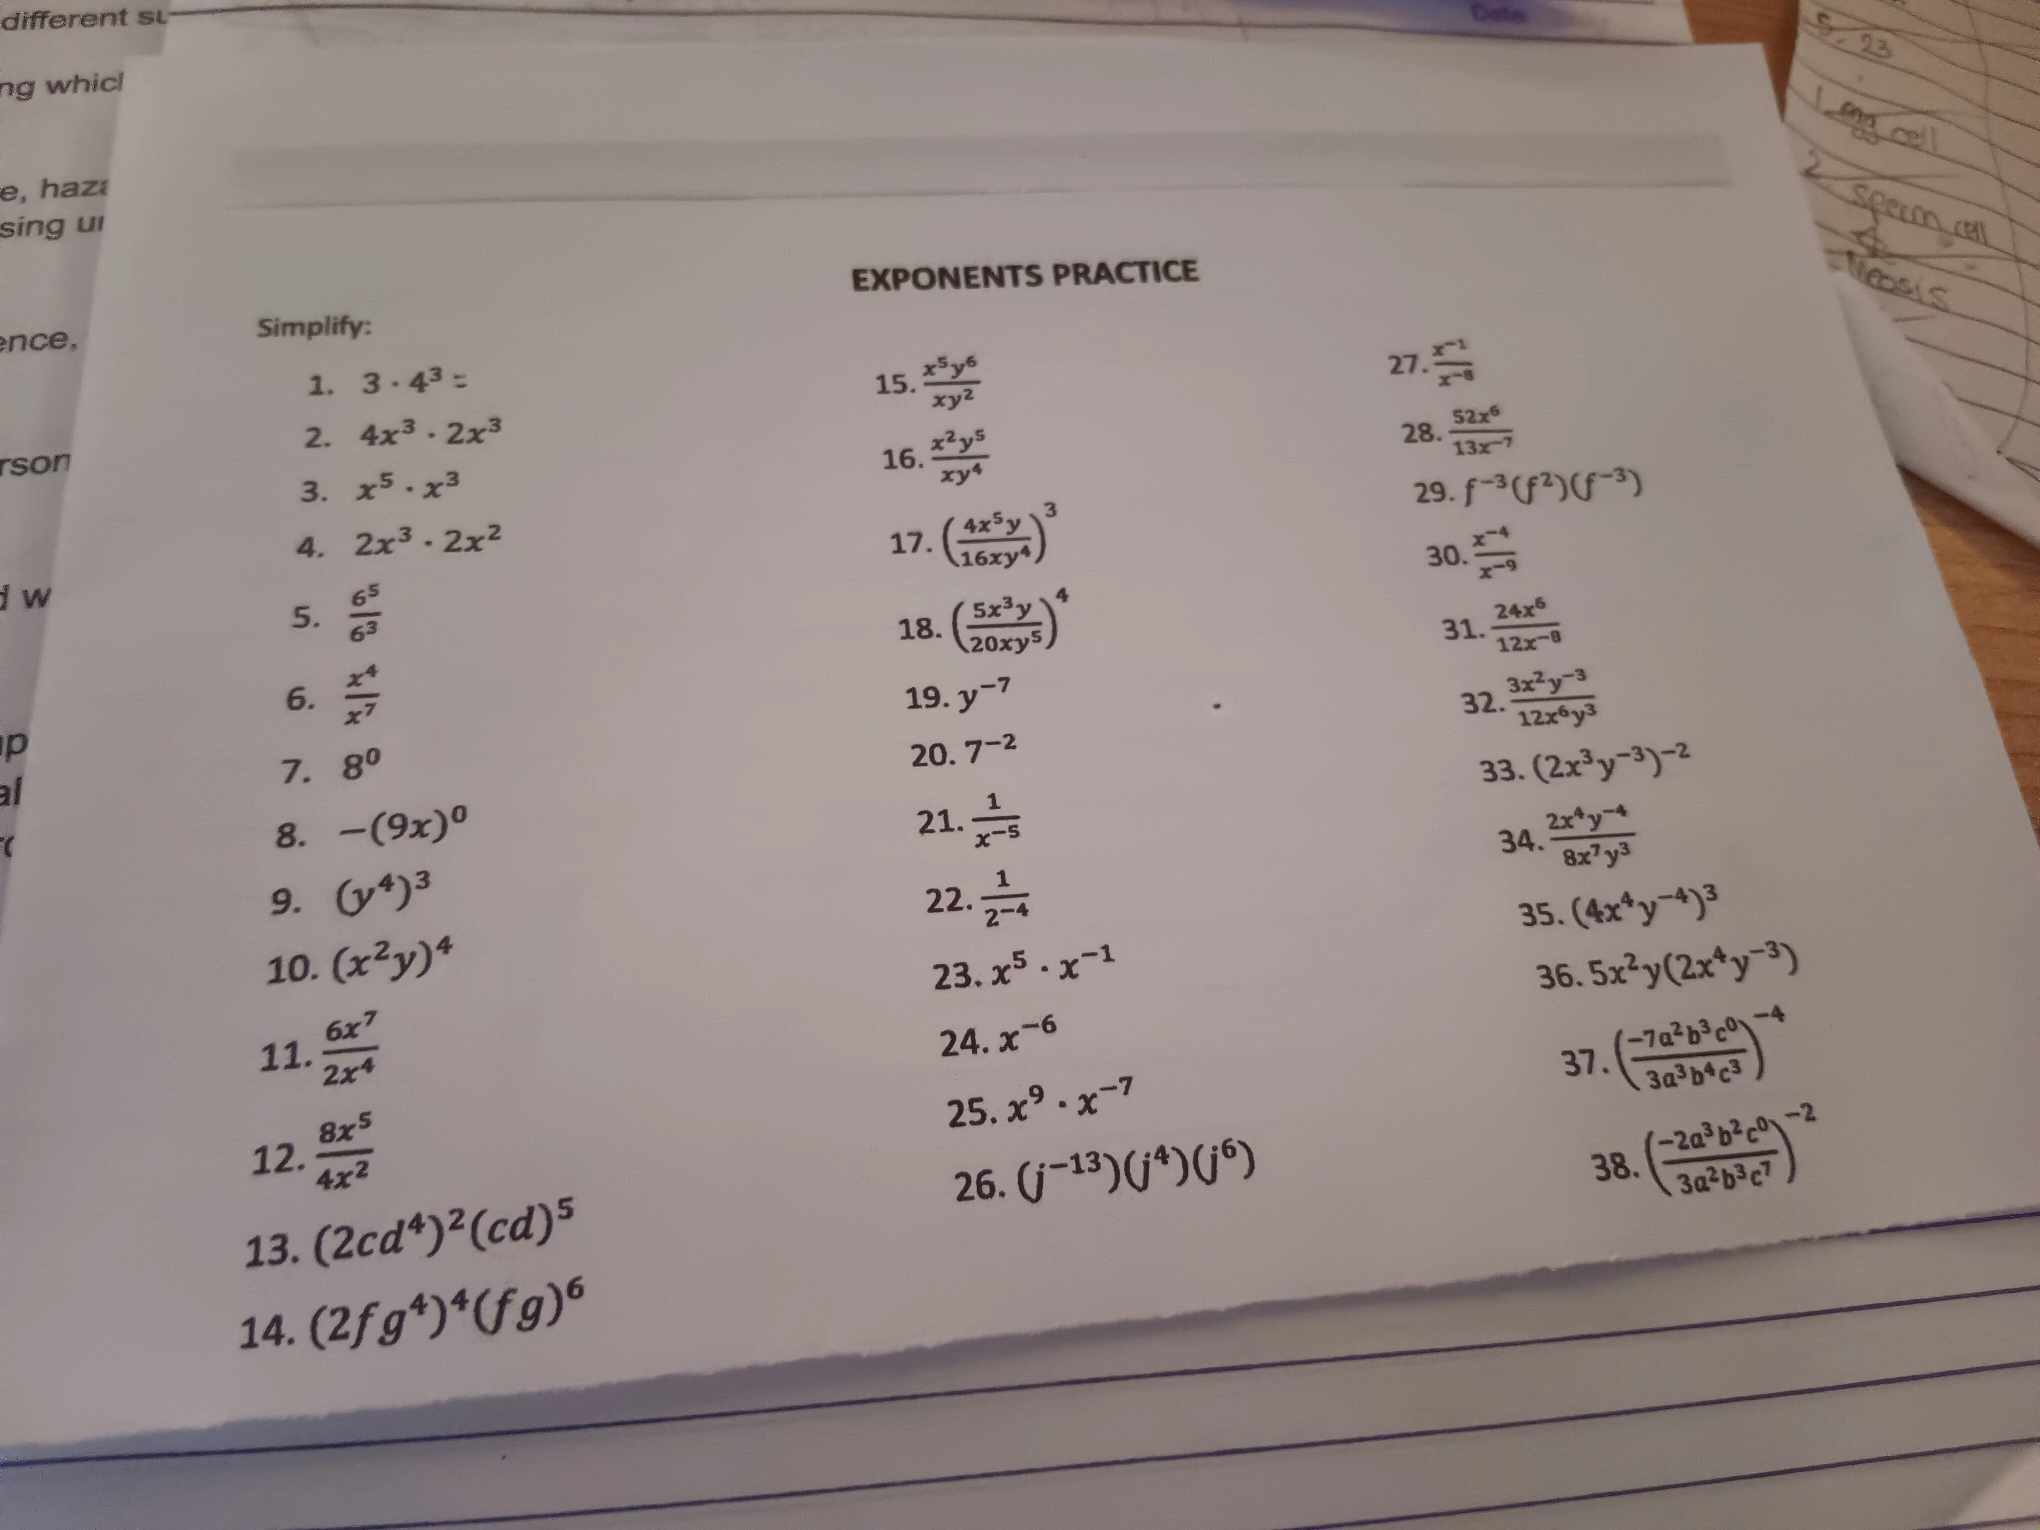 different
ng which
e, haz
sing
ence,
rson
d w
Date
5. 23
1 egg cell
2 sperm cell
EXPONENTS PRACTICE
Simplify:
1. 3 · 4³ =
2. 4x³ · 2x³
3. x⁵ · x³
4. 2x³ · 2x²
5. 6⁵/6³
6. x⁴/x⁷
7. 8⁰
8. −(9x)⁰
9. (y⁴)³
10. (x²y)⁴
11. 6x⁷/2x⁴
12. 8x⁵/4x²
13. (2cd⁴)²(cd)⁵
14. (2fg⁴)⁴(fg)⁶
15. x⁵y⁶/xy²
16. x²y⁵/xy⁴
17. (4x⁵y/16xy⁴)³
18. (5x³y/20xy⁵)⁴
19. y⁻⁷
20. 7⁻²
21. 1/x⁻⁵
22. 1/2⁻⁴
23. x⁵ · x⁻¹
24. x⁻⁶
25. x⁹ · x⁻⁷
26. (j⁻¹³)(j⁴)(j⁶)
27. x⁻¹/x⁻⁸
28. 52x⁶/13x⁻⁷
29. f⁻³(f²)(f⁻³)
30. x⁻⁴/x⁻⁹
31. 24x⁶/12x⁻⁸
32. 3x²y⁻³/12x⁶y³
33. (2x³y⁻³)⁻²
34. 2x⁴y⁻⁴/8x⁷y³
35. (4x⁴y⁻⁴)³
36. 5x²y(2x⁴y⁻³)
37. (−7a²b³c⁰/3a³b⁴c³)⁻⁴
38. (−2a³b²c⁰/3a²b³c⁷)⁻²